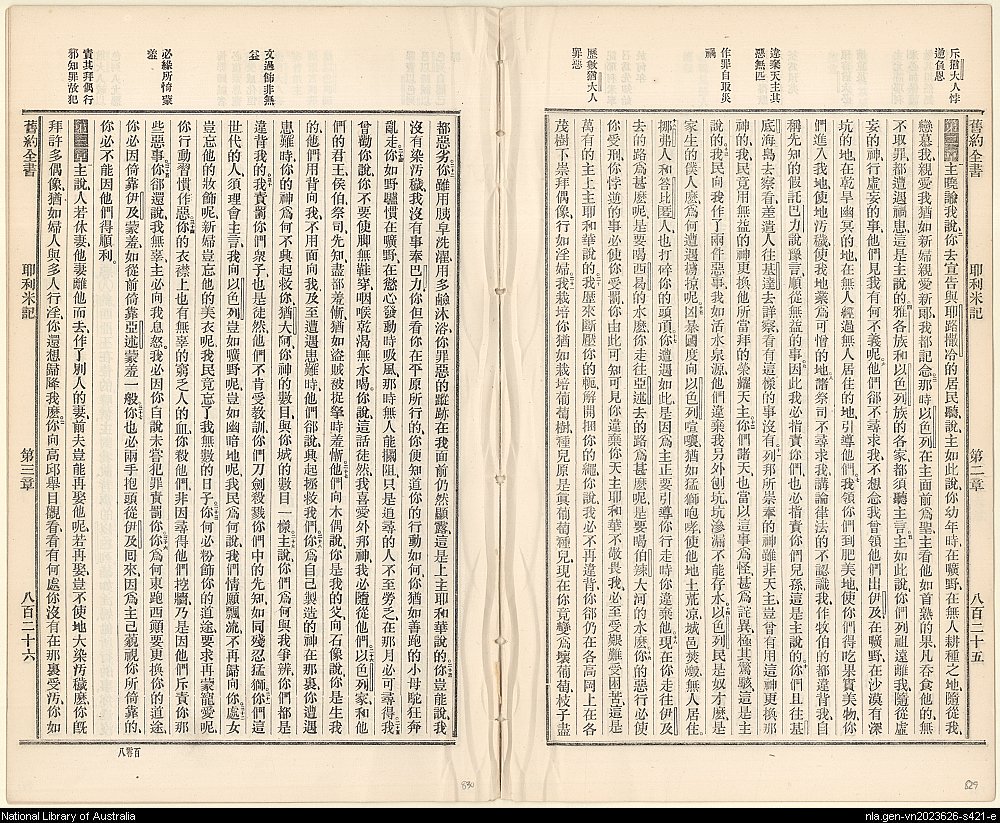 斥猶大人悖
逆負恩
違棄天主其
惡無匹
作罪自取災
禍
歷數猶大人
罪惡
舊約全書 耶利米記 第二章 八百二十五
第二章 主曉諭我說、你去宣告與耶路撒冷的居民聽、說主如此說、你幼年時在曠野、在無人耕種之地、隨從我、
戀慕我、親愛我、猶如新婦親愛新郎、我都記念、那時以色列在主面前為聖、主看他如首熟的果、凡吞食他的、無
不取罪、都遭遇禍患、這是主說的、雅各族和以色列族的各家、都須聽主言、主如此說、你們列祖遠離我、隨從虛
妄的神、行虛妄的事、他們見我有何不義呢、他們卻不尋求我、不想念我曾領他們出伊及、在曠野、在沙漠有深
坑的地、在乾旱幽冥的地、在無人經過無人居住的地、引導他們、我領你們到肥美地、使你們得吃果實美物、你
們進入我地、使地汚穢、使我地業為可憎的地、諸祭司不尋求我、講論律法的不認識我、作牧伯的都違背我、自
稱先知的假託巴力說豫言、順從無益的事、因此我必指責你們、也必指責你們兒孫、這是主說的、你們且往基
底海島去察看、差遣人往基達去詳察、看有這樣的事沒有、列邦所崇奉的神雖非天主、豈曾有用這神更換那
神的、我民竟用無益的神更換他所當拜的榮耀天主、你們諸天也當以這事為怪、甚為詫異、極其驚駭、這是主
說的、我民向我作了兩件惡事、我如活水泉源、他們違棄我、另外刨坑、坑滲漏不能存水、以色列民是奴才麼、是
家生的僕人麼、為何遭遇擄掠呢、凶暴國度向以色列喧嚷、猶如猛獅咆哮、使他地土荒涼、城邑焚燬、無人居住、
挪弗人和答比匿人也打碎你的頭頂、你遭遇如此、是因為主正要引導你行走時、你違棄他、現在你走往伊及
去的路為甚麼呢、是要喝西曷的水麼、你走往亞述去的路為甚麼呢、是要喝伯辣大河的水麼、你的惡必使
你受刑、你悖逆的事必使你受罰、你由此可知可見、你違棄你天主耶和華、不敬畏我、必至受艱難受困苦、這是
萬有的主上主耶和華說的、我歷來斷壓你的軛、解開捆你的繩、你說、我必不再違背、你卻仍在各高岡上、在各
茂樹下、祟拜偶像、行如淫婦、我栽培你、猶如栽培葡萄樹、種兒原是眞葡萄種兒、現在你竟變為壞葡萄枝子、盡
文過飾非無
益
必緣所倚蒙
羞
責其拜偶行
邪知罪故犯
都惡劣、你雖用胰皁洗濯、用多鹼沐浴、你罪惡的蹤跡在我面前仍然顯露、這是上主耶和華說的、你豈能說、我
沒有染汚穢、我沒有事奉巴力、你但看你在平原所行的、你便知道你的行動如何、你猶如善跑的小母駝狂奔
亂走、你如野驢慣在曠野、在慾心發動時吸風、那時無人能攔阻、只是追尋的人不至勞乏、在那月必可尋得、我
曾勸你說、你不要使脚無鞋穿、咽喉乾渴無水喝、你說、這話徒然、我喜愛外邦神、我必隨從他們、以色列家和他
們的君王侯伯祭司先知、盡都羞慚、猶如盜賊被捉拏時羞慚、他們向木偶說、你是我的父、向石像說、你是生我
的、他們用背向我、不用面向我、及至遭遇患難時、他們卻說、興起拯救我們、你為自己製造的神在那裏、你遭遇
患難時、你的神為何不興起救你、猶大阿、你神的數目與你城的數目一樣、主說、你們為何與我爭辨、你們都是
違背我的、我責罰你們衆子也是徒然、他們不肯受教訓、你們刀劍殺戮你們中的先知、如同殘忍猛獅、你們這
世代的人、須理會主言、我向以色列豈如曠野呢、豈如幽暗地呢、我民為何說、我們情願飄流、不再歸向你、處女
豈忘他的妝飾呢、新婦豈忘他的美衣呢、我民竟忘了我無數的日子、你何必粉飾你的道途、要求再蒙寵愛呢、
你行動習慣作惡、你的衣襟上也有無辜的窮人之血、你殺他們、非因尋得他們挖牆、乃是因他們斥責你那
些惡事、你卻還說、我無辜、主必向我息怒、我必因你自說未嘗犯罪責罰你、你為何東跑西顚、要更換你的道途、
你必因倚靠伊及蒙羞、如從前倚靠亞述蒙羞一般、你也必兩手抱頭從伊及囘來、因為主已藐視你所倚靠的、
你必不能因他們得順利。
第三章 主說、人若休妻、他妻離他而去、作了別人的妻、前夫豈能再娶他呢、若再娶、豈不使地大染汚穢麼、你旣
拜許多偶像、猶如婦人與多人行淫、你還想歸降我麼、你向高邱舉目觀看、看有何處你沒有在那裏受汚、你如
舊約全書 耶利米記 第三章 八百二十六
百零八
830
829
National Library of Australia
nla.gen-vn2023626-s421-e